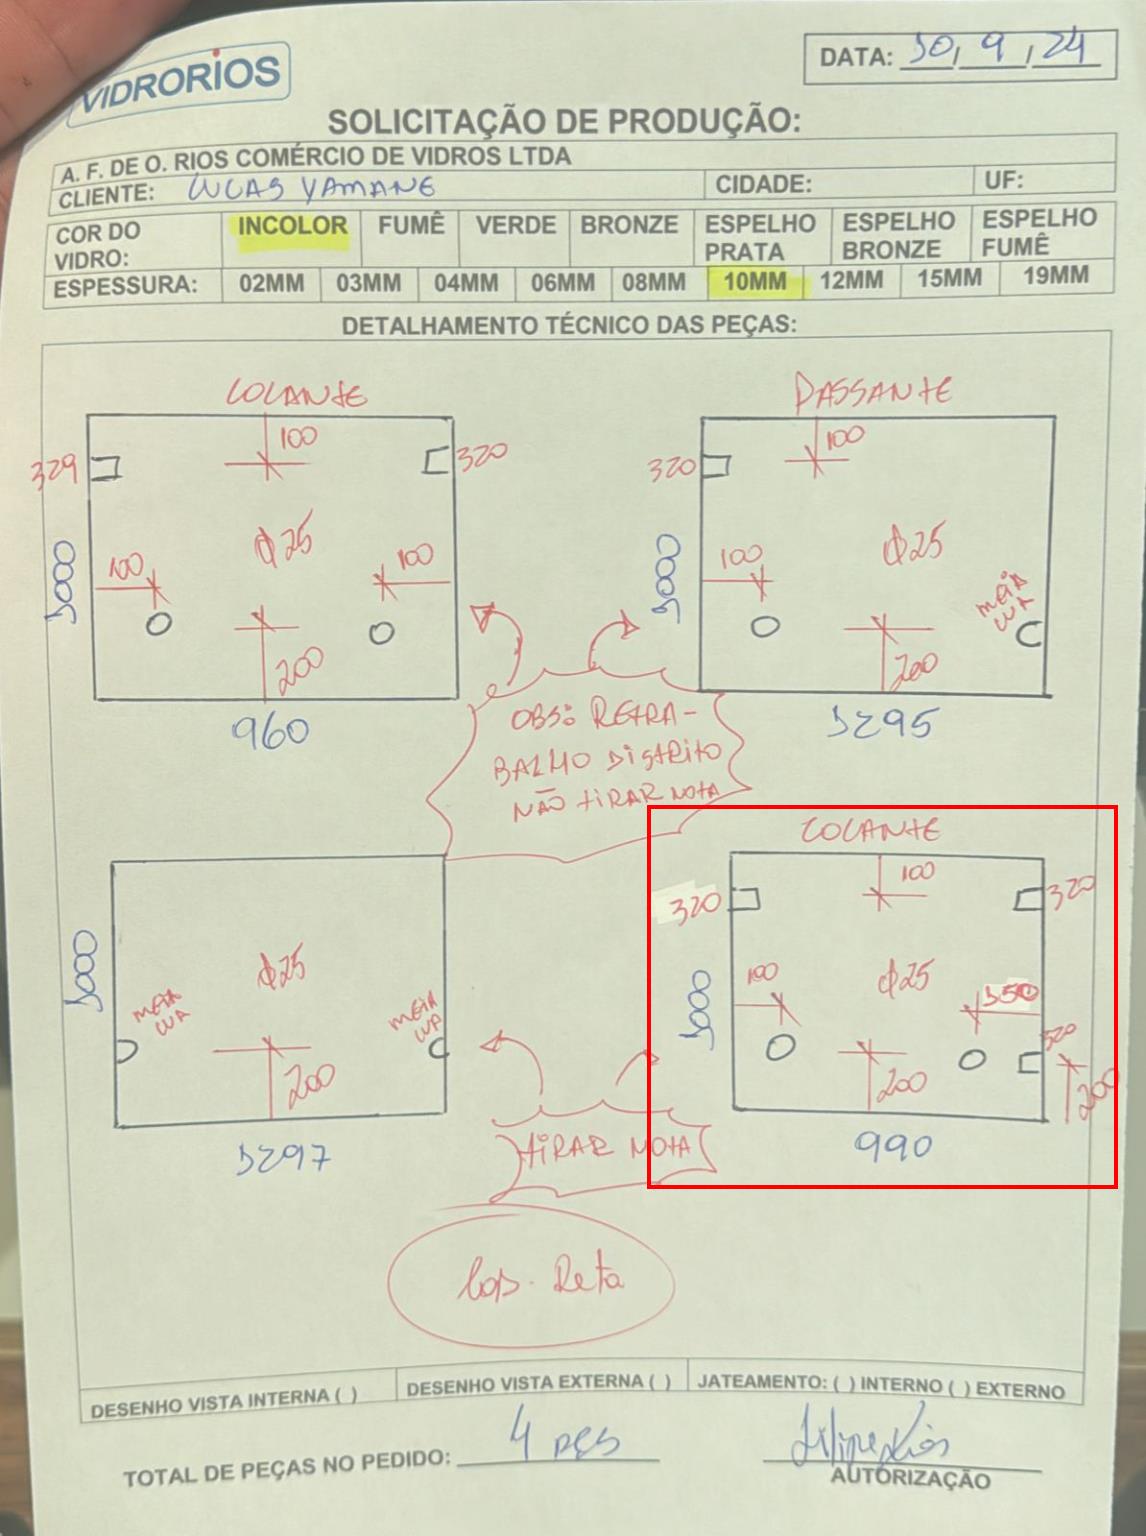 VIDRORIOS
DATA: 30/9/24
SOLICITAÇÃO DE PRODUÇÃO:
A. F. DE O. RIOS COMÉRCIO DE VIDROS LTDA
CLIENTE: LUCAS YAMANE CIDADE: UF:
COR DO VIDRO: INCOLOR FUMÊ VERDE BRONZE ESPELHO PRATA ESPELHO BRONZE ESPELHO FUMÊ
ESPESSURA: 02MM 03MM 04MM 06MM 08MM 10MM 12MM 15MM 19MM
DETALHAMENTO TÉCNICO DAS PEÇAS:
COLANTE
100
329 320
φ25
3000
100 100
200
960
PASSANTE
100
320
φ25
3000
100
MEIA
LUA
200
3295
OBS: RETRA-
BALHO DISTRITO
NÃO TIRAR NOTA
3000
φ25
MEIA
LUA
MEIA
LUA
200
3297
COLANTE
100
320 320
φ25
3000
100 350
320
200 200
990
TIRAR NOTA
Lap. Reta
DESENHO VISTA INTERNA ( ) DESENHO VISTA EXTERNA ( ) JATEAMENTO: ( ) INTERNO ( ) EXTERNO
TOTAL DE PEÇAS NO PEDIDO: 4 PÇS
AUTORIZAÇÃO